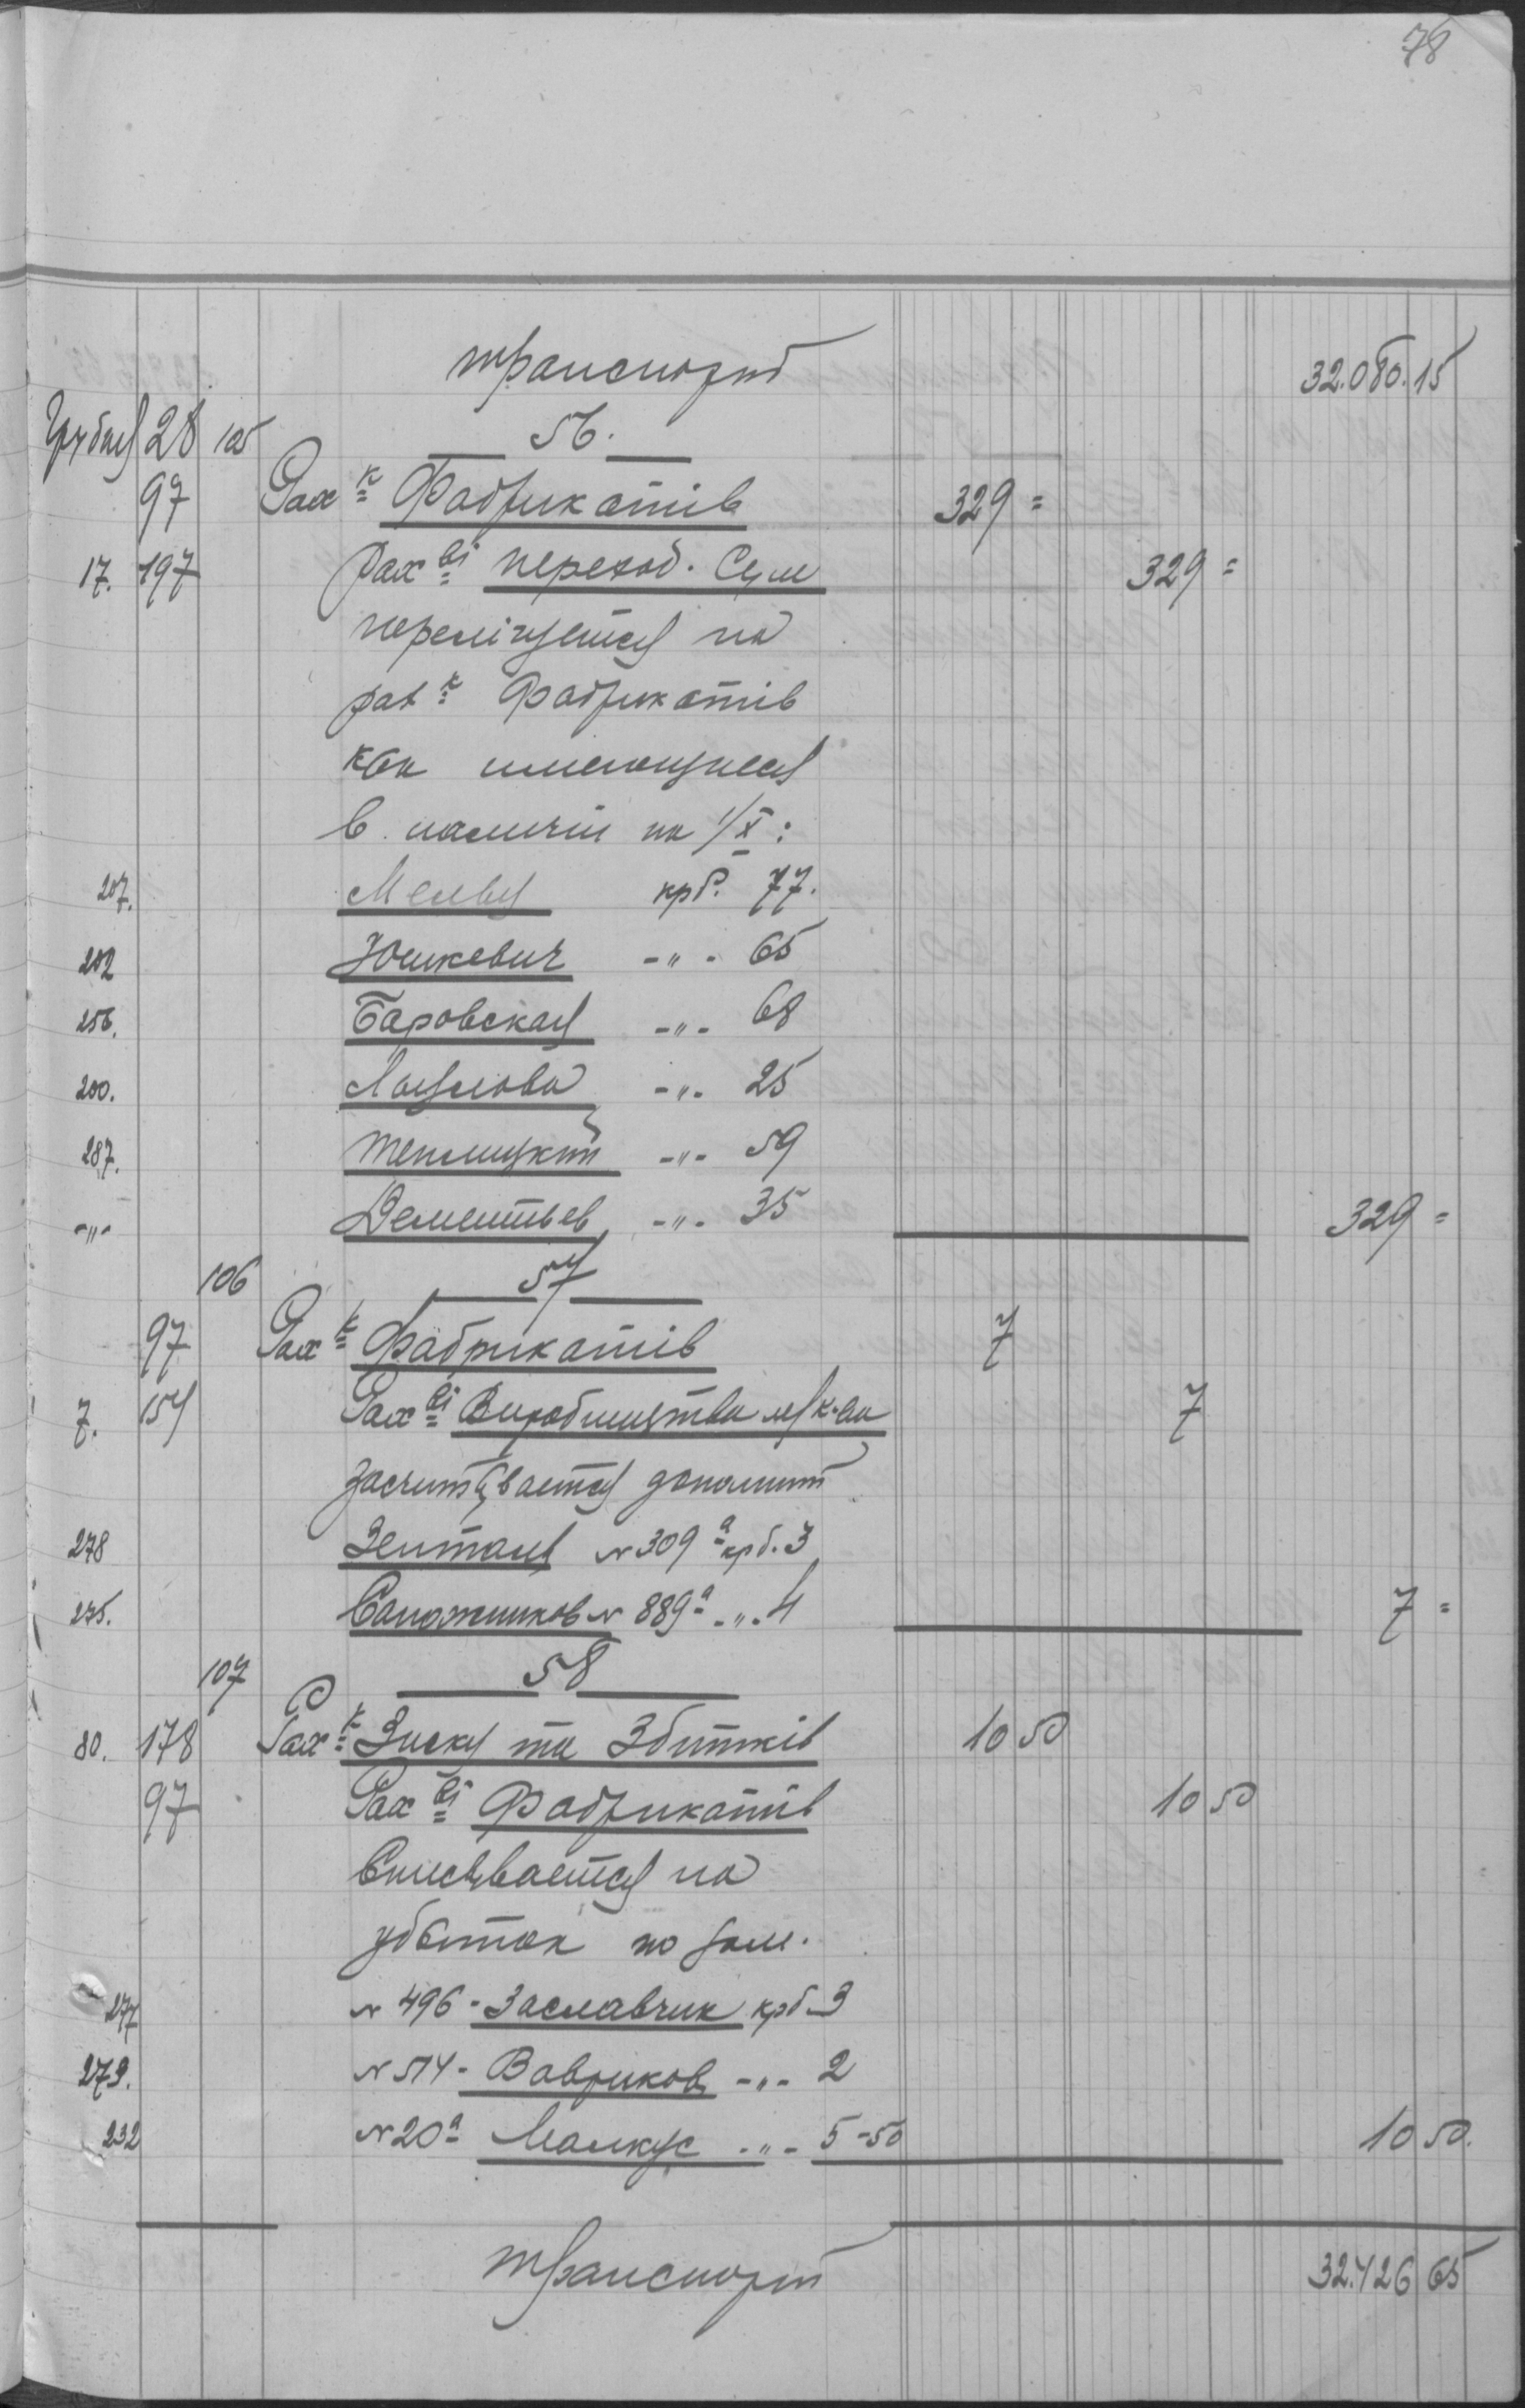 78
транспорт 32.080.15
Грудня 28 105 56.
97 Рах к Фабрикатів 329 =
17. 197 Рах ві переход. Сум 329 =
перечисляется на
рах к Фабрикатів
как имеющиеся
в наличии на 1/X:
207. крб. 77.
202 Юшкевич -"- 65
256. Баровская -"- 68
200. -"- 25
287. Теплицкий -"- 59
-"- Дементьев -"- 35 329 =
106 57
97 Рах к Фабрикатів 7
7. 154 Рах ві Виробництва 7
засчитывается дополнит
278 N 309 а крб. 3
275. Сапожников N 889 а -"- 4 7 =
107 58
80. 178 Рах к Зиску та Збитків 10 50
97 Рах ві Фабрикатів 10 50
Списывается на
убыток по зам.
277 N 496 - Заславчик крб 3
279. N 514 - Вавриков -"- 2
232 N 20 а Малкус -"- 5-50 10 50.
транспорт 32.426 65